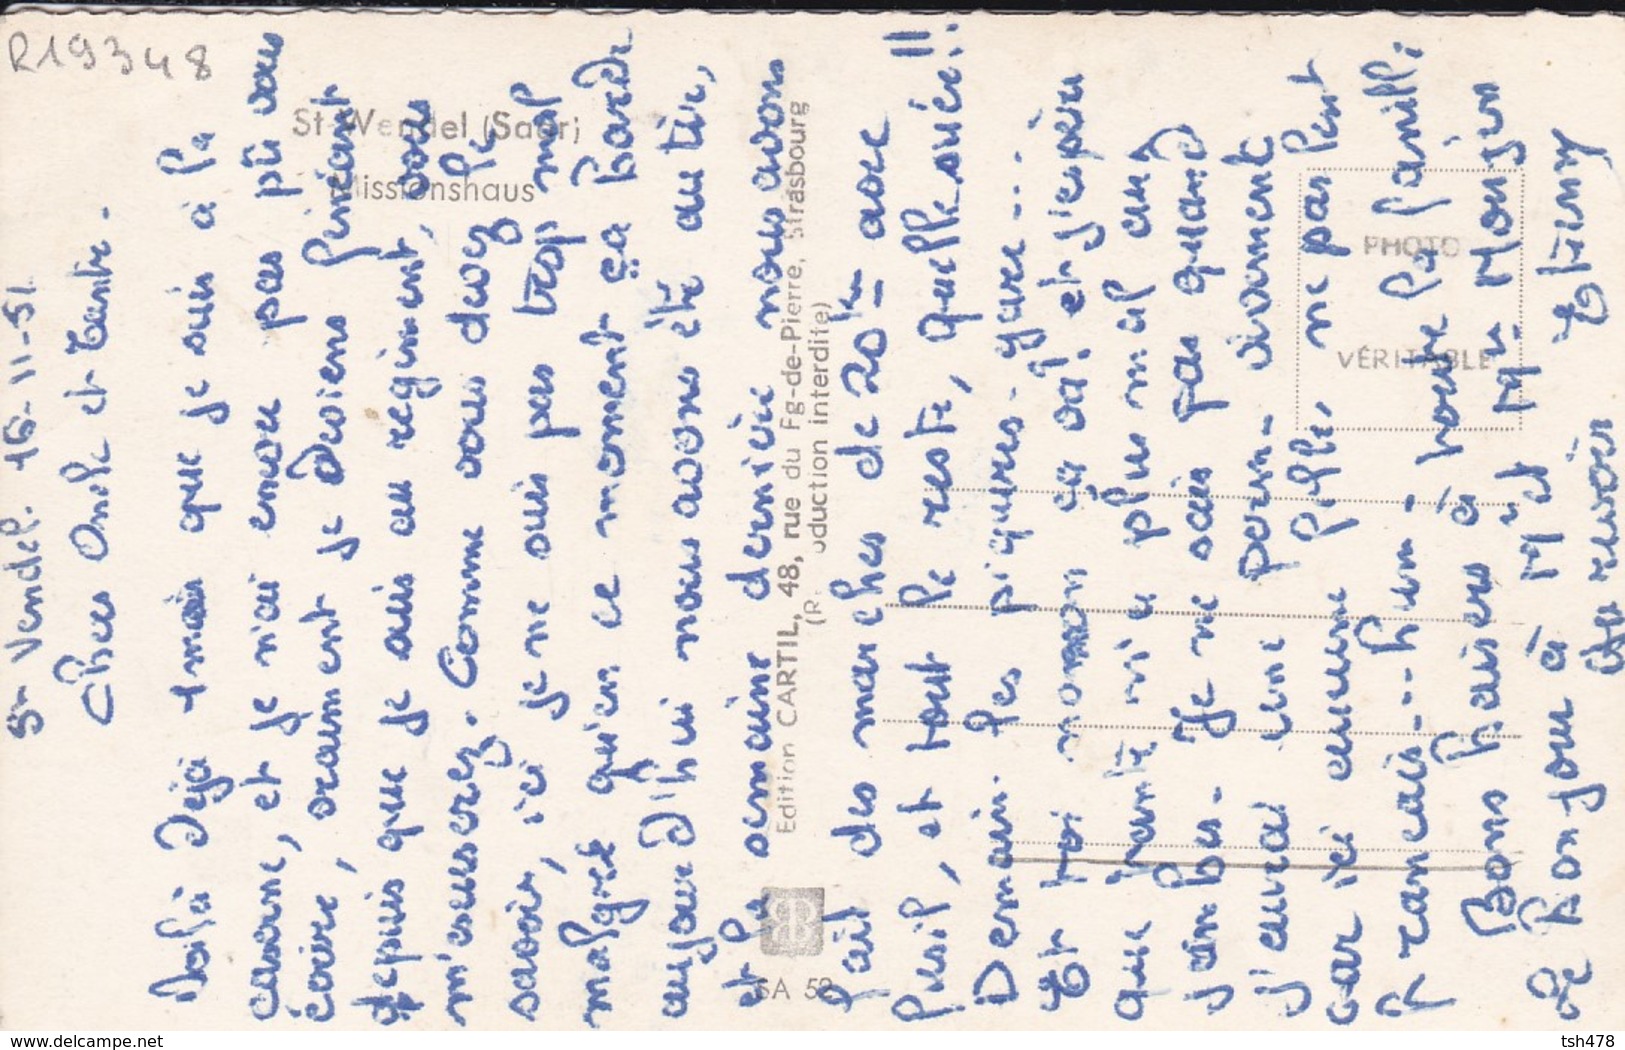 R19348
St-Wendel (Saar)
Missionshaus
PHOTO
VÉRITABLE
Edition CARTIL, 48, rue du Fg-de-Pierre, Strasbourg
(R oduction interdite)
SA 52
St Vendel. 16-11-51
Chers Oncle et tante.
Voilà déjà 1 mois que je suis à la
caserne, et je n'ai encore pas pû vous
écrire, vraiment je deviens feinéant
depuis que je suis au regiment, vous
m'excuserez. Comme vous devez le
savoir, ici je ne suis pas trop mal
malgré qu'en ce moment ça barde
aujourd'hui nous avons été au tir,
et la semaine dernière nous avons
fait des marches de 20 km avec
fusil, et tout le reste, quelle soirée!!
Demain les piqures - gare ...
Et toi maman ça va! et j'espère
que tante n'a plus mal aux
jambes. Je ne sais pas quand
j'aurai une perm. vivement
car ici aucune fille, ne parlent
francais... hum. toute la famille;
Bons baisers à
Le bonjour à M et Mme Monzien
Au revoir Etieny
delcampe.net
tsh478